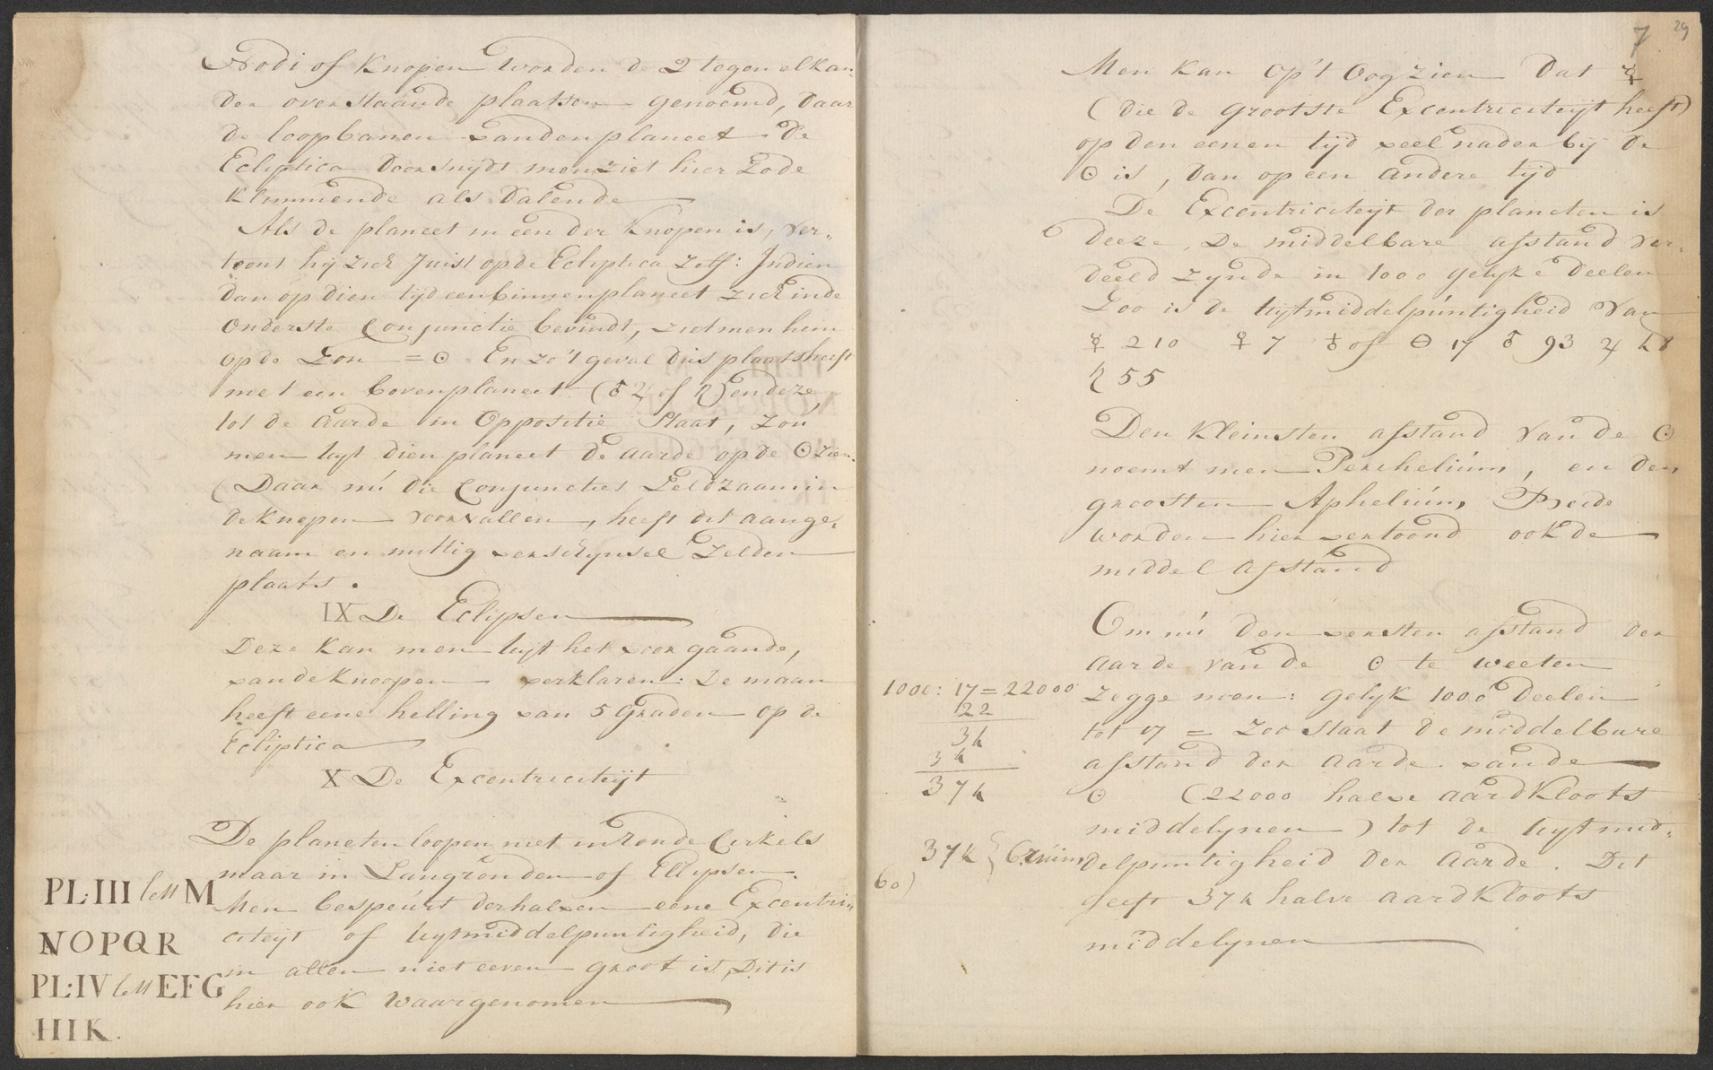 Nodi of Knopen worden de 2 tegen elkan-
der overstaande plaatsen genoemd, daar
de loopbanen van den planeet de
Ecliptica doorsnydt men ziet hier Zo de
klimmende als Dalende
Als de planeet in een der Knopen is, ver-
toont hy zich Juist op de Ecliptica zelf: Indien
dan op dien tyd een binnenplaneet zich in de
onderste Conjunctie bevindt, ziet men hem
op de Zon = ☉ En zo 't geval dus plaats heeft
met een bovenplaneet (♂ ♃ of ♄) en deze
tot de aarde in Oppositie Staat, zou
men uyt dien planeet de aarde op de ☉ zien.
(Daar nú die Conjuncties Zeldzaam in
de knopen voorvallen, heeft dit aange-
naam en nuttig verschynsel Zelden
plaats.
IX De Eclipsen
Deze kan men uyt het voorgaande,
van de Knoopen verklaren: De maan
heeft eene helling van 5 Graden op de
Ecliptica
X De Excentriciteijt
De planeten loopen niet in Ronde Cirkels
maar in Langronden of Ellypsen.
Men bespeúrt derhalven eene Excentri-
citeijt of uytmiddelpuntigheid, die
in allen niet even groot is, Dit is
hier ook Waargenomen
PL:III lett M
NOPQR
PL:IV lett EFG
HIK.
7 29
Men kan op 't Oog zien Dat ☿
(die de grootste Excentriciteijt heeft)
op den eenen tijd veel nader bij de
☉ is, dan op een andere tijd
De Excentriciteijt der planeten is
deeze. De middelbare afstand ver-
deeld zynde in 1000 gelyke deelen
Zoo is de uytmiddelpúntigheid Van
☿ 210 ♀ 7 ♁ of ⊖ 17 ♂ 93 ♃ 48
♄ 55
Den kleinsten afstand van de ☉
noemt men Perihelium, en den
grootsten Aphelium, Beide
worden hier vertoond ook de
middel afstand
Om nú den versten afstand der
aarde van de ☉ te weeten
zegge men: gelyk 1000 deelen
tot 17 = Zoo staat de middelbare
afstand der aarde van de
☉ (22000 halve aardkloots
middelynen) tot de uytmid-
delpuntigheid der Aarde. Dit
geeft 374 halve aardkloots
middelynen
1000: 17 = 22000
22
34
34
374
374 } 6 ruim
60)